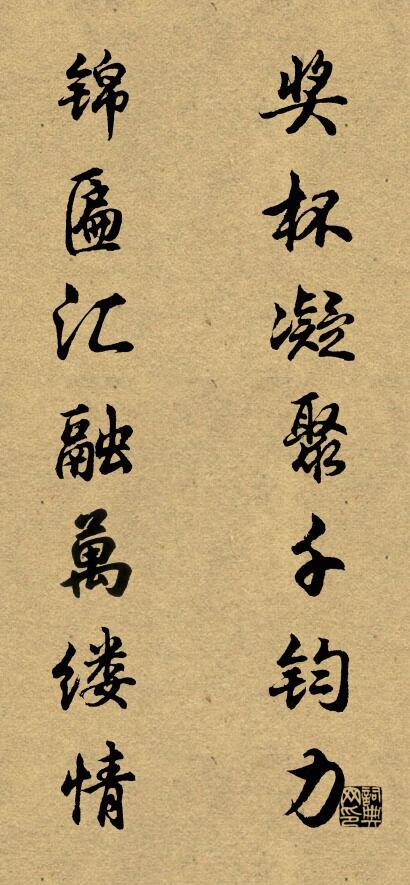 奖杯凝聚千钧力
锦匾汇融萬缕情
詞典网印